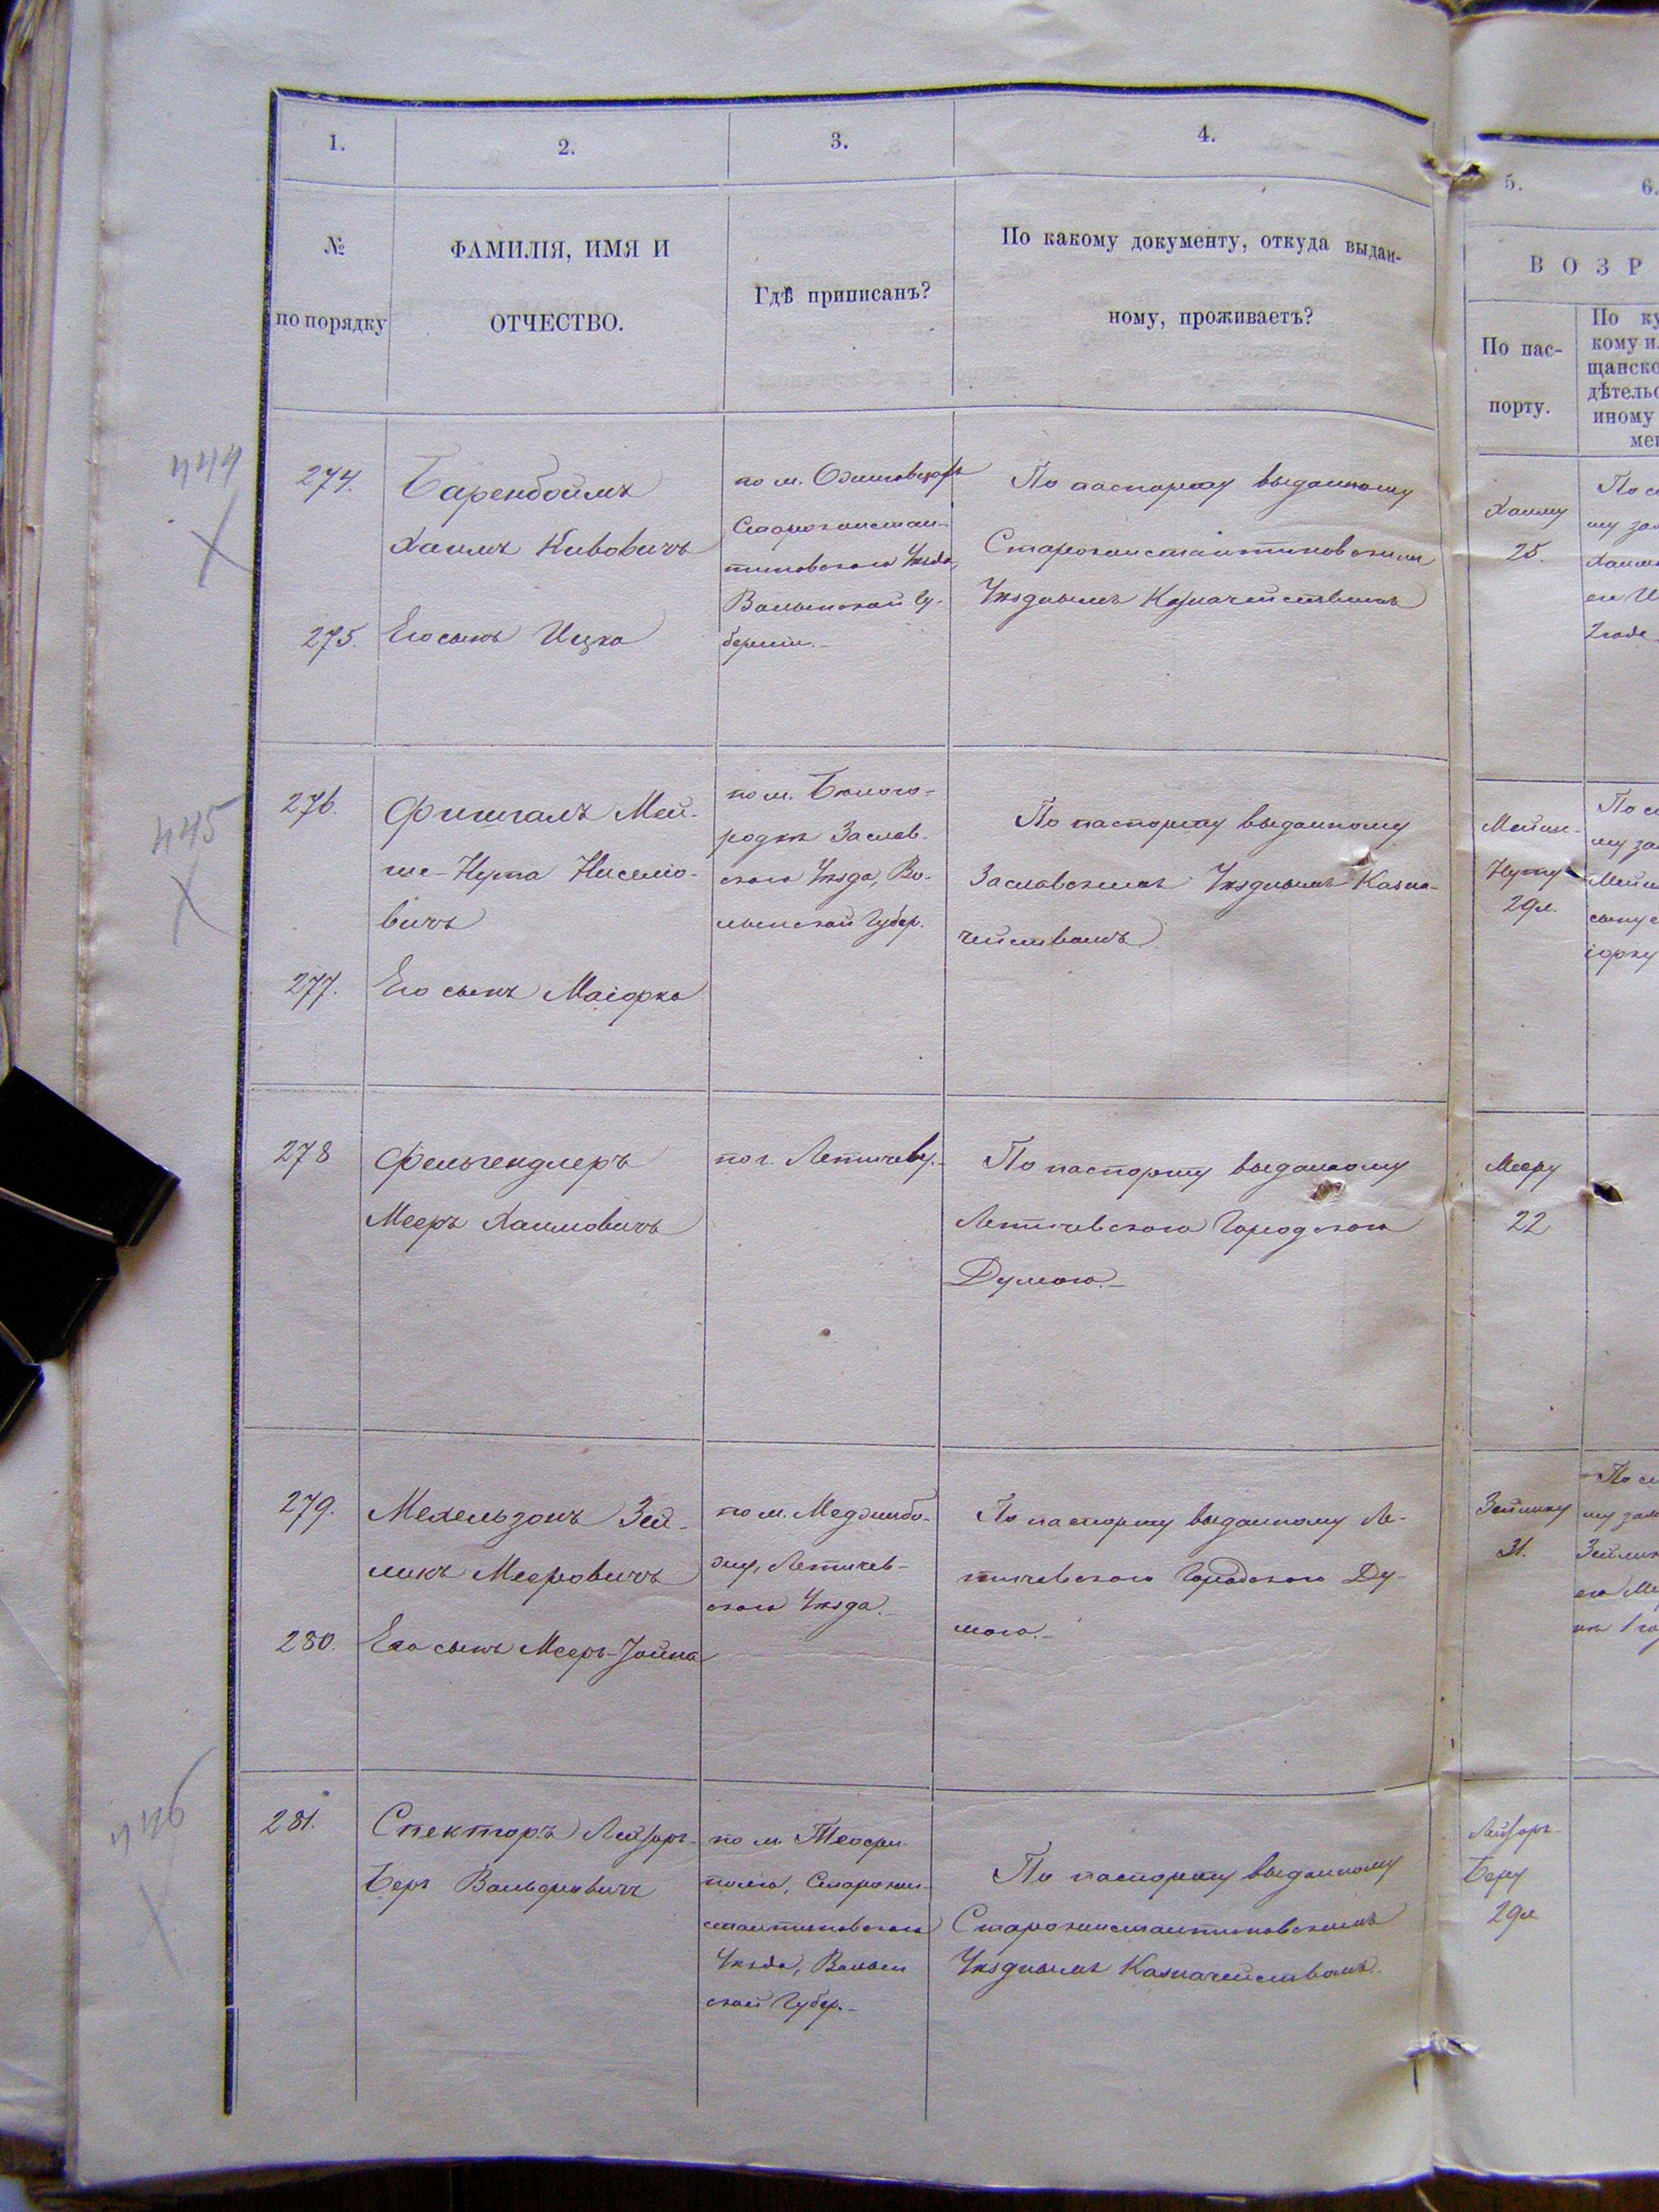 1.
2.
3.
4.
5.
6.
№
по порядку
ФАМИЛІЯ, ИМЯ И
ОТЧЕСТВО.
Гдѣ приписанъ?
По какому документу, откуда выдан-
ному, проживаетъ?
ВОЗР
По пас-
порту.
По ку
кому и
щанско
дѣтельс
иному
мен
444
274.
Баренбоймъ
Хаимъ Кивовичъ
275. Его сынъ Ицко
по м.
Старокостан-
тиновского Уѣзда,
Волынской Гу-
берніи.
По паспорту выданному
Староконстантиновскимъ
Уѣзднымъ Казначействомъ
Хаиму
25.
445
276.
Фишгалъ Мей-
ше-Нута Ниселіо-
вичъ
277. Его сынъ Маіорко
по м. Бѣлого-
родкѣ Заслав-
ского Уѣзда, Во-
лынской Губер.
По паспорту выданному
Заславскимъ Уѣзднымъ Казна-
чействомъ
Мейше-
Нуту
29 л.
278
Фельгендлеръ
Мееръ Хаимовичъ
по г. Летичеву.
По паспорту выданному
Летичевского Городского
Думою.
Мееру
22
279.
Мехельзонъ Зей-
ликъ Мееровичъ
280. Его сынъ Мееръ-Іойна
по м. Меджибо-
жу, Летичев-
ского Уѣзда.
По паспорту выданному Ле-
тичевского Городского Ду-
мою.
Зейлику
31.
446
281.
Спекторъ Лейзоръ-
Беръ Вольфовичъ
по м. Теофи-
полю, Старокон-
стантиновского
Уѣзда, Волын
ской Губер.
По паспорту выданному
Староконстантиновскимъ
Уѣзднымъ Казначействомъ.
Лейзоръ-
Беру
29 л